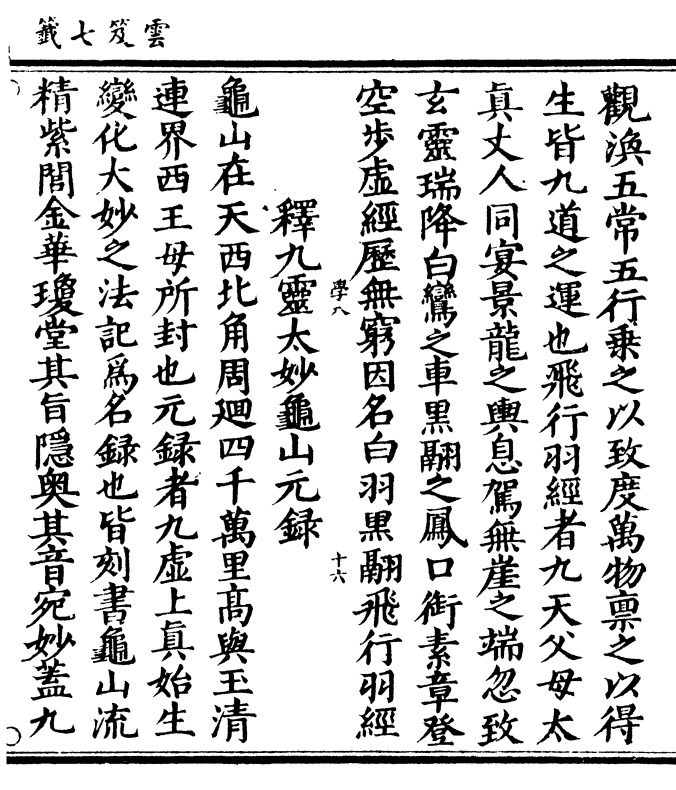 雲笈七籤
觀渙五常五行乗之以致度萬物禀之以得
生皆九道之運也飛行羽經者九天父母太
真丈人同宴景龍之輿息駕無崖之端忽致
玄靈瑞降白鸞之車黒翮之鳳口銜素章登
空步虛經歷無窮因名白羽黒翮飛行羽經
學八
十六
釋九靈太妙龜山元録
龜山在天西北角周廻四千萬里髙與玉清
連界西王母所封也元録者九虛上真始生
變化大妙之法記爲名録也皆刻書龜山流
精紫閣金華瓊堂其旨隱奥其音宛妙蓋九